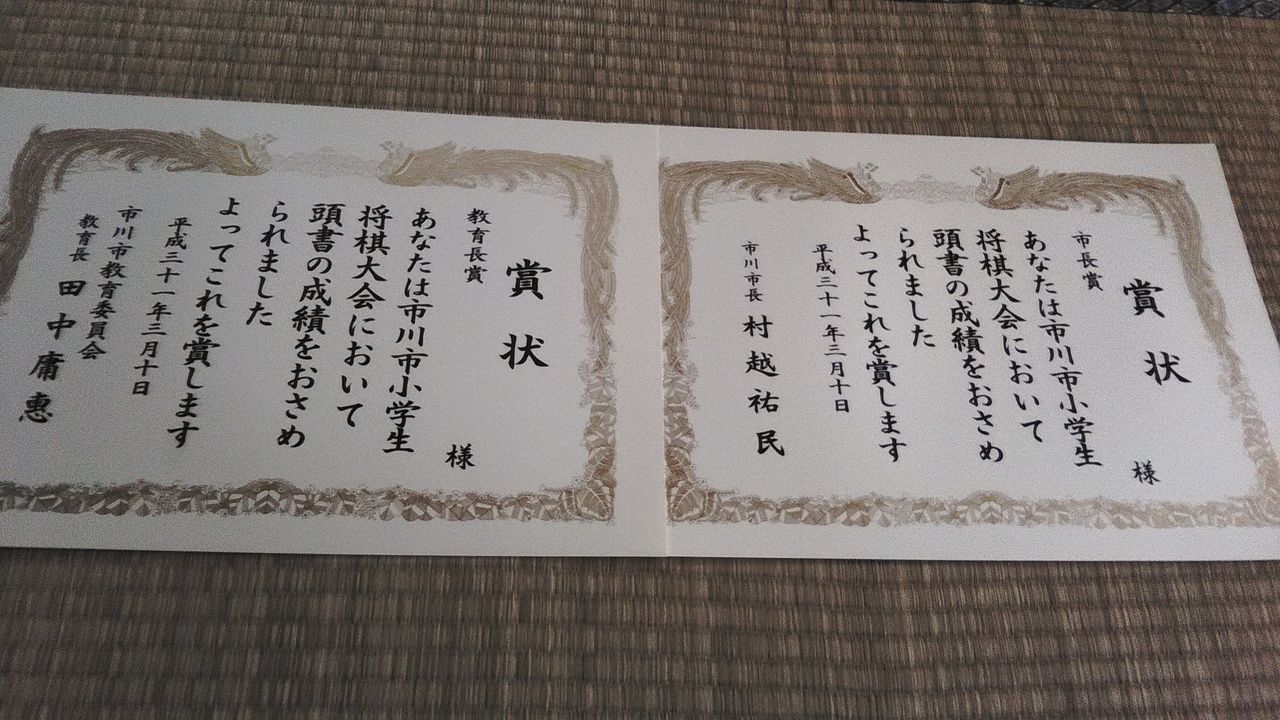 賞状
市長賞
様
あなたは市川市小学生
将棋大会において
頭書の成績をおさめ
られました
よってこれを賞します
平成三十一年三月十日
市川市長 村越祐民
賞状
教育長賞
様
あなたは市川市小学生
将棋大会において
頭書の成績をおさめ
られました
よってこれを賞します
平成三十一年三月十日
市川市教育委員会
教育長 田中庸惠